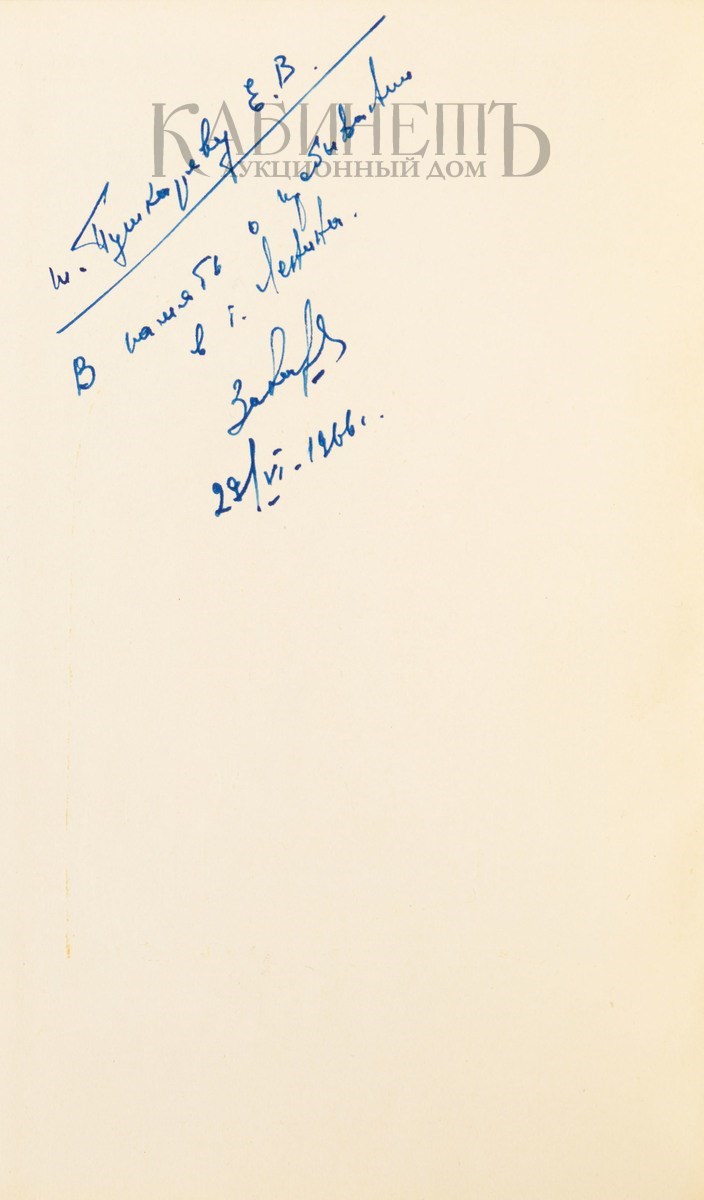 КАБИНЕТЪ
АУКЦИОННЫЙ ДОМ
т. Пушкареву Е.В.
В память о пребывании
в г. Ленина.
29/VI-1966г.